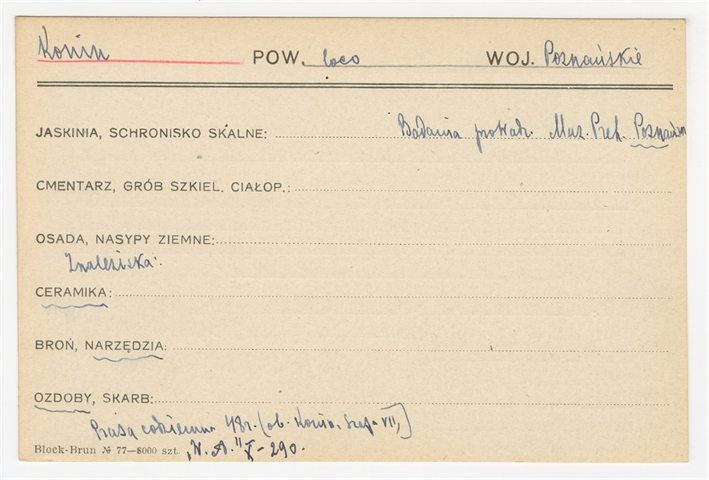 Konin POW. loco WOJ. Poznańskie
JASKINIA, SCHRONISKO SKALNE: Badania prowadz. Muz. Preh. Poznań
CMENTARZ, GRÓB SZKIEL. CIAŁOP.:
OSADA, NASYPY ZIEMNE:
Znaleziska:
CERAMIKA:
BROŃ, NARZĘDZIA:
OZDOBY, SKARB:
Prasa codzienna 48r. (ob. Konin. VII,)
Block-Brun № 77—8000 szt. „W. A." X - 290.